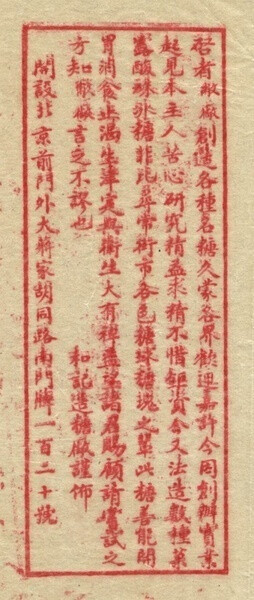 啓者敝廠創造各種名糖久蒙各界歡迎嘉許今因創辦實業
起見本主人苦心研究精益求精不惜鉅資今又法造數種菓
露酸球氷糖非比尋常街市各色糖球糖塊之輩此糖善能開
胃消食止渴生津實與衛生大有裨益望諸君賜顧請嘗試之
方知敝廠言之不謬也 和記造糖廠謹佈
開設北京前門外大蔣家胡同路南門牌一百二十號